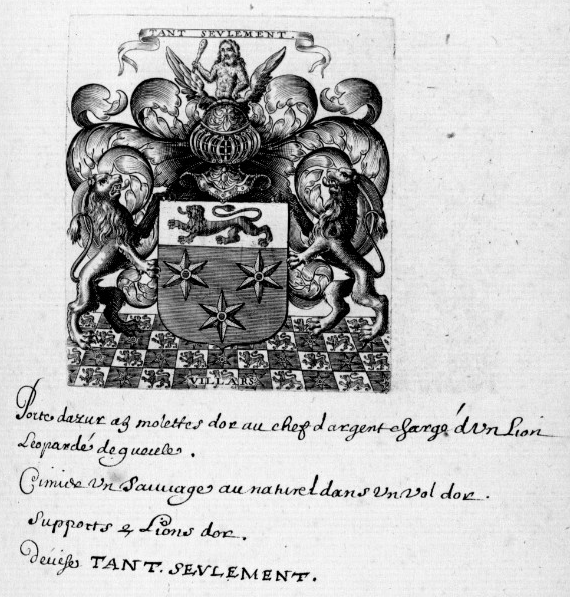 TANT SEVLEMENT.
VILLARS
Porte dazur a 3 molettes dor au chef dargent chargé d'un Lion
Leopardé de gueule.
Cimier un Sauuage au naturel dans un vol dor.
Supports 2 Lions dor.
Deuise TANT. SEVLEMENT.